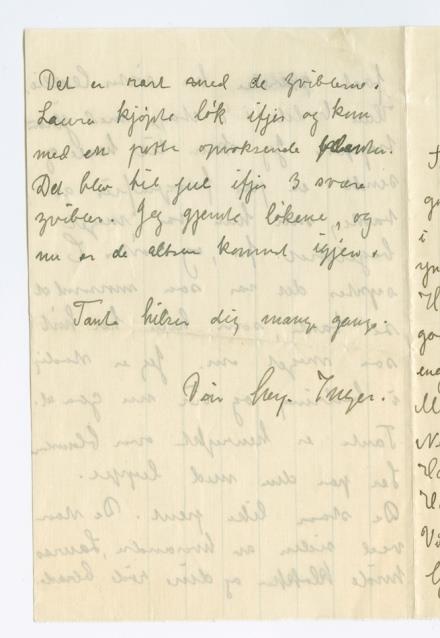 Det er rart med de zviblerne.
Laura kjøpte løk ifjor og kom
med en potte opvoksende planter.
Det blev til jul ifjor 3 svære
zvibler. Jeg gjemte løkene, og
nu er de altsaa kommet igjen.
Tante hilser dig mange gange.
Din heng. Inger.